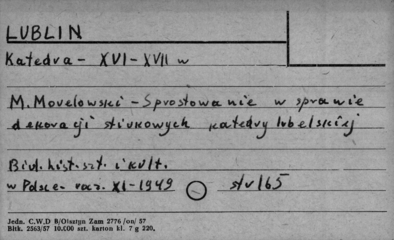 LUBLIN
Katedra - XVI - XVII w
M. Morelowski - Sprostowanie w sprawie
dekoracji stiukowych katedry lubelskiej
Biul. hist. szt. i kult.
w Polsce - rocz. XI - 1949 str 165
Jedn. C.W.D B/Olsztyn Zam 2776/on/57
Bltk. 2563/57 10.000 szt. karton kl. 7 g 220.